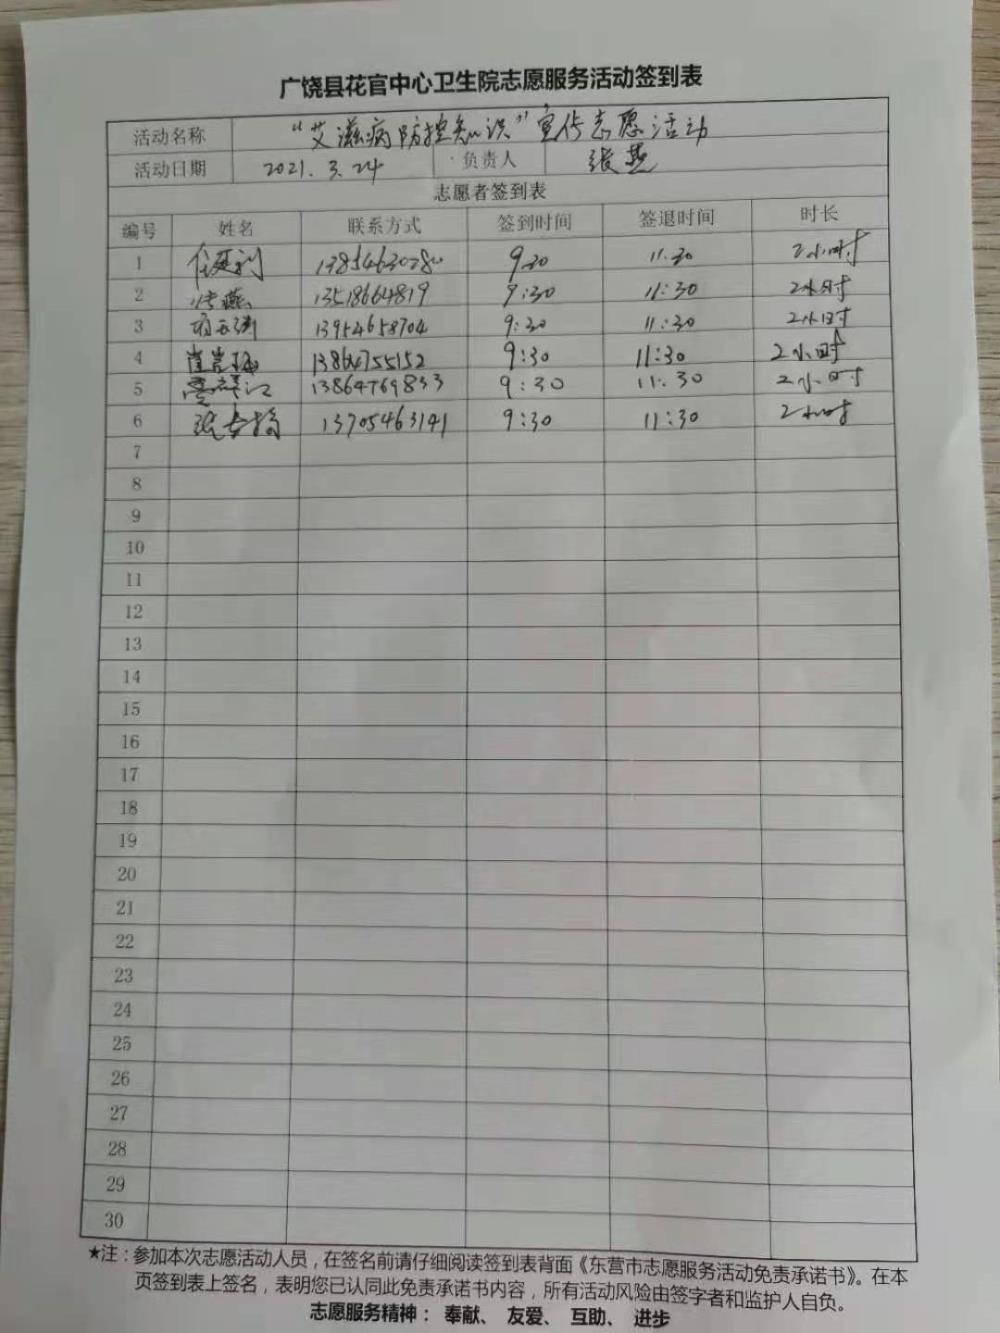 广饶县花官中心卫生院志愿服务活动签到表
活动名称 “艾滋病防控知识”宣传志愿活动
活动日期 2021.3.24 负责人 张燕
志愿者签到表
编号 姓名 联系方式 签到时间 签退时间 时长
1 13854630280 9:30 11:30 2小时
2 张燕 13518664819 9:30 11:30 2小时
3 13954658704 9:30 11:30 2小时
4 13864755152 9:30 11:30 2小时
5 13864769833 9:30 11:30 2小时
6 13705463141 9:30 11:30 2小时
7
8
9
10
11
12
13
14
15
16
17
18
19
20
21
22
23
24
25
26
27
28
29
30
★注：参加本次志愿活动人员，在签名前请仔细阅读签到表背面《东营市志愿服务活动免责承诺书》。在本
页签到表上签名，表明您已认同此免责承诺书内容，所有活动风险由签字者和监护人自负。
志愿服务精神：奉献、友爱、互助、进步